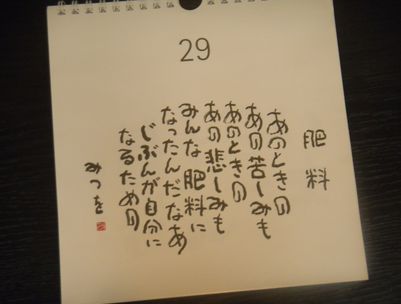 29
肥料
あのときの
あの苦しみも
あのときの
あの悲しみも
みんな肥料に
なったんだなあ
じぶんが自分に
なるための
みつを